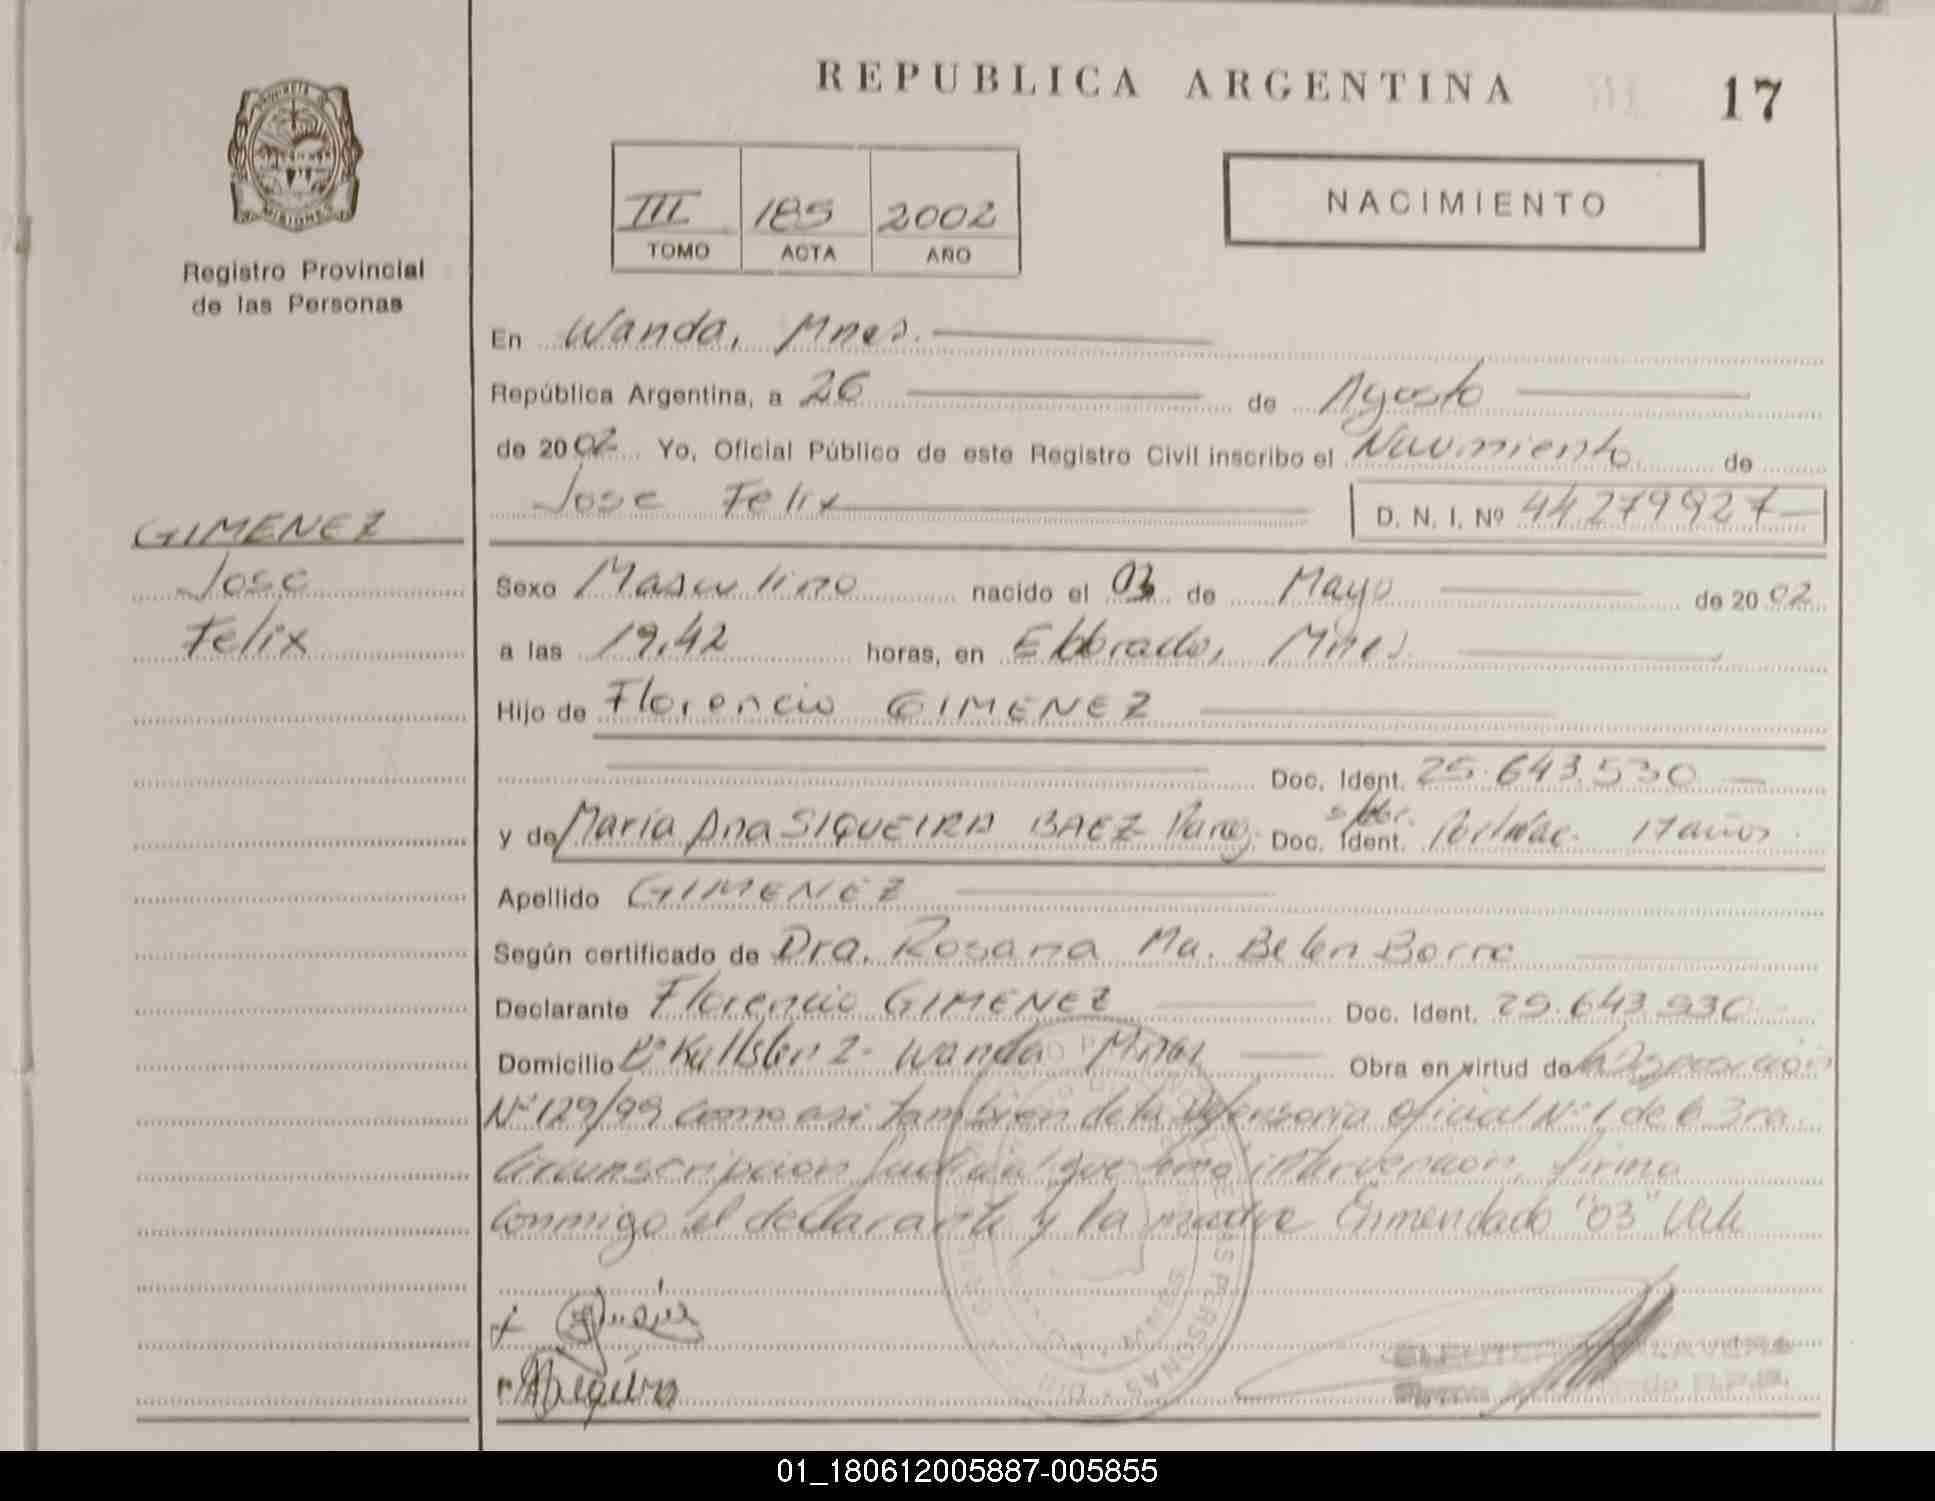 REPUBLICA ARGENTINA
17
PROVINCIA DE
MISIONES
Registro Provincial
de las Personas
III 185 2002
TOMO ACTA AÑO
NACIMIENTO
En Wanda, Mnes.
República Argentina, a 26 de Agosto
de 2002 Yo, Oficial Público de este Registro Civil inscribo el Nacimiento de
Jose Felix D. N. I. Nº 44279927
GIMENEZ
Jose
Felix
Sexo Masculino nacido el 03 de Mayo de 2002
a las 19,42 horas, en Eldorado, Mnes.
Hijo de Florencio GIMENEZ
Doc. Ident. 25.643.530
y de Maria Ana SIQUEIRA BAEZ Doc. Ident. 17 años
Apellido GIMENEZ
Según certificado de Dra. Rosana Ma. Belen Borre
Declarante Florencio GIMENEZ Doc. Ident. 25.643.530
Domicilio Bº Kullsten 2 - Wanda Mnes Obra en virtud de la Disposicion
Nº 129/99 como asi tambien de la Defensoria Oficial Nº 1 de la 3ra
Circunscripcion Judicial que tomo intervencion, firma
conmigo el declarante y la madre Enmendado "03" Vale
01_180612005887-005855